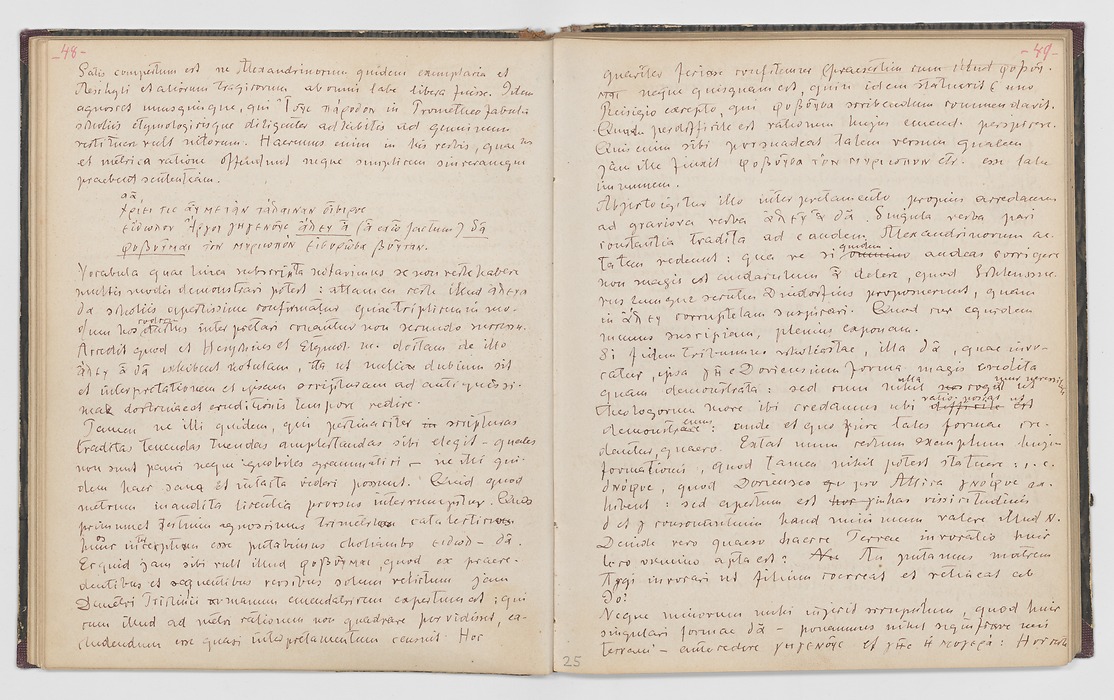 -48-
Satis compertum est ne Alexandrinorum quidem exemplaria et
Aeschyli et aliorum tragicorum ab omni labe libera fuisse. Idem
agnoscet unusquisque, qui Ἰοῦς πάροδον in Prometheo fabula
scholiis etymologicisque diligenter adhibitis ad genuinum
restituere vult nitorem. Haeremus enim in his verbis, quae
et metrica ratione offendunt neque simplicem sinceramque
praebent sententiam.
ἆ ἆ
χρίει τις αὖ με τὰν τάλαιναν οἶστρος
εἴδωλον Ἄργου γηγενοῦς ἄλευ ἆ δᾶ
φοβοῦμαι τὸν μυριωπὸν εἰσορῶσα βούταν.
Vocabula quae linea subscripta notavimus se non recte habere
multis modis demonstrari potest: attamen recte illud ἄλευ ἆ
δᾶ scholiis apertissime confirmatur quae triplicem in mo-
dum has interpretari conantur non secundo successu.
Accedit quod et Hesychius et Etymol. doctam de illo
ἄλευ ἆ δᾶ exhibent notulam, ita ut dubium sit
et interpretationem et ipsam scripturam ad antiquissi-
mae doctrinae et eruditionis tempora redire.
Tamen ne illi quidem, qui pertinaciter scripturas
traditas tenendas tuendas amplectandas sibi elegit – quales
non sunt pauci neque ignobiles grammatici – ne illi qui-
dem haec sana et intacta videri possunt. Quid quod
metrum inaudita licentia prorsus interrumpitur. Quos
trimetros catalecticos
esse putabimus choliambo εἴδωλ – δᾶ.
Ecquid jam sibi vult illud φοβοῦμαι, quod ex praece-
dentibus et sequentibus versibus solum relictum jam
Demetri Triclinii manum emendatricem expertum est; qui
cum illud ad metri rationem non quadrare pervidisset, ex-
cludendum esse quasi interpretamentum censuit. Hoc
-49-
fecisse confitemur (praesertim cum illud φοβοῦ-
μαι neque quisquam est, quin idem statuerit uno
Reisigio excepto, qui φοβοῦσα scribendum commendavit.
perdifficile est rationem hujus emend. perspicere.
Quis enim sibi persuadeat talem versum qualem
jam ille finxit φοβοῦσα τὸν μυριωπὸν etc. esse labe
immunem.
Abjecto igitur illo interpretamento propius accedamus
ad graviora verba ἄλευ ἆ δᾶ. Singula verba pari
constantia tradita ad eandem Alexandrinorum ae-
tatem redeunt: qua re si quidem audeas corrigere
non magis est audacitum ἆ delere, quod
eumque secutus Dindorfius proposuerunt, quam
in ἄλευ corruptelam suspicari. Quod cur equidem
munus suscipiam, plenius exponam.
Si fidem tribuimus scholiastae, illa δᾶ, quae invo-
catur, ipsa γῆ e Doriensium forma magis credita
quam demonstrata: sed cum nihil ulla nos cogat ut
theologorum more ibi credamus ubi ratio poscat ut
demonstremus: unde et quo jure tales formae cre-
dantur, quaero. Extat unum exemplum hujus
formationis, quod tamen nihil potest statuere:
δνόφος, quod Dorienses pro Attica γνόφος ex-
hibent: sed apertum est hujus vicissitudinis
δ et γ consonantium haud minimum valere illud ν.
Deinde vero quaeso haecce Terrae invocatio huic
loco omnino apta est? An putamus matrem
Argi invocari ut filium coerceat et retineat ab
Io?
Neque minorem mihi injicit scrupulum, quod huic
singulari formae δᾶ – ponamus nihil significare nisi
terram – antecedere γηγενοῦς et γῆς
25